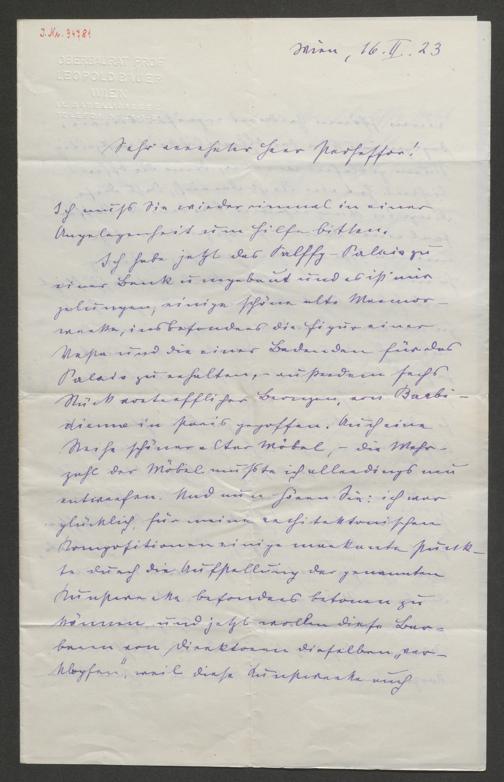 J. Nr. 34781
OBERBAURAT PROF.
LEOPOLD BAUER
WIEN
Wien, 16. II. 23
Sehr verehrter Herr Professor!
Ich muß Sie wieder einmal in einer
Angelegenheit um Hilfe bitten.
Ich habe jetzt das Palffy-Palais zu
einer Bank umgebaut und es ist mir
gelungen, einige schöne alte Marmor-
werke, insbesondere die Figur einer
Vesta und die einer Badenden für das
Palais zu erhalten, - außerdem sechs
Stück vortrefflicher Bronzen, von Barbi-
dienne in Paris gegossen. Auch eine
Reihe schöner alter Möbel, - die Mehr-
zahl der Möbel mußte ich allerdings neu
entwerfen. Und nun hören Sie: ich war
glücklich, für meine architektonischen
Kompositionen einige markante Punk-
te durch die Aufstellung der genannten
Kunstwerke besonders betonen zu
können und jetzt wollen diese Bar-
baren von Direktoren dieselben „ver-
klopfen“, weil diese Kunstwerke auch